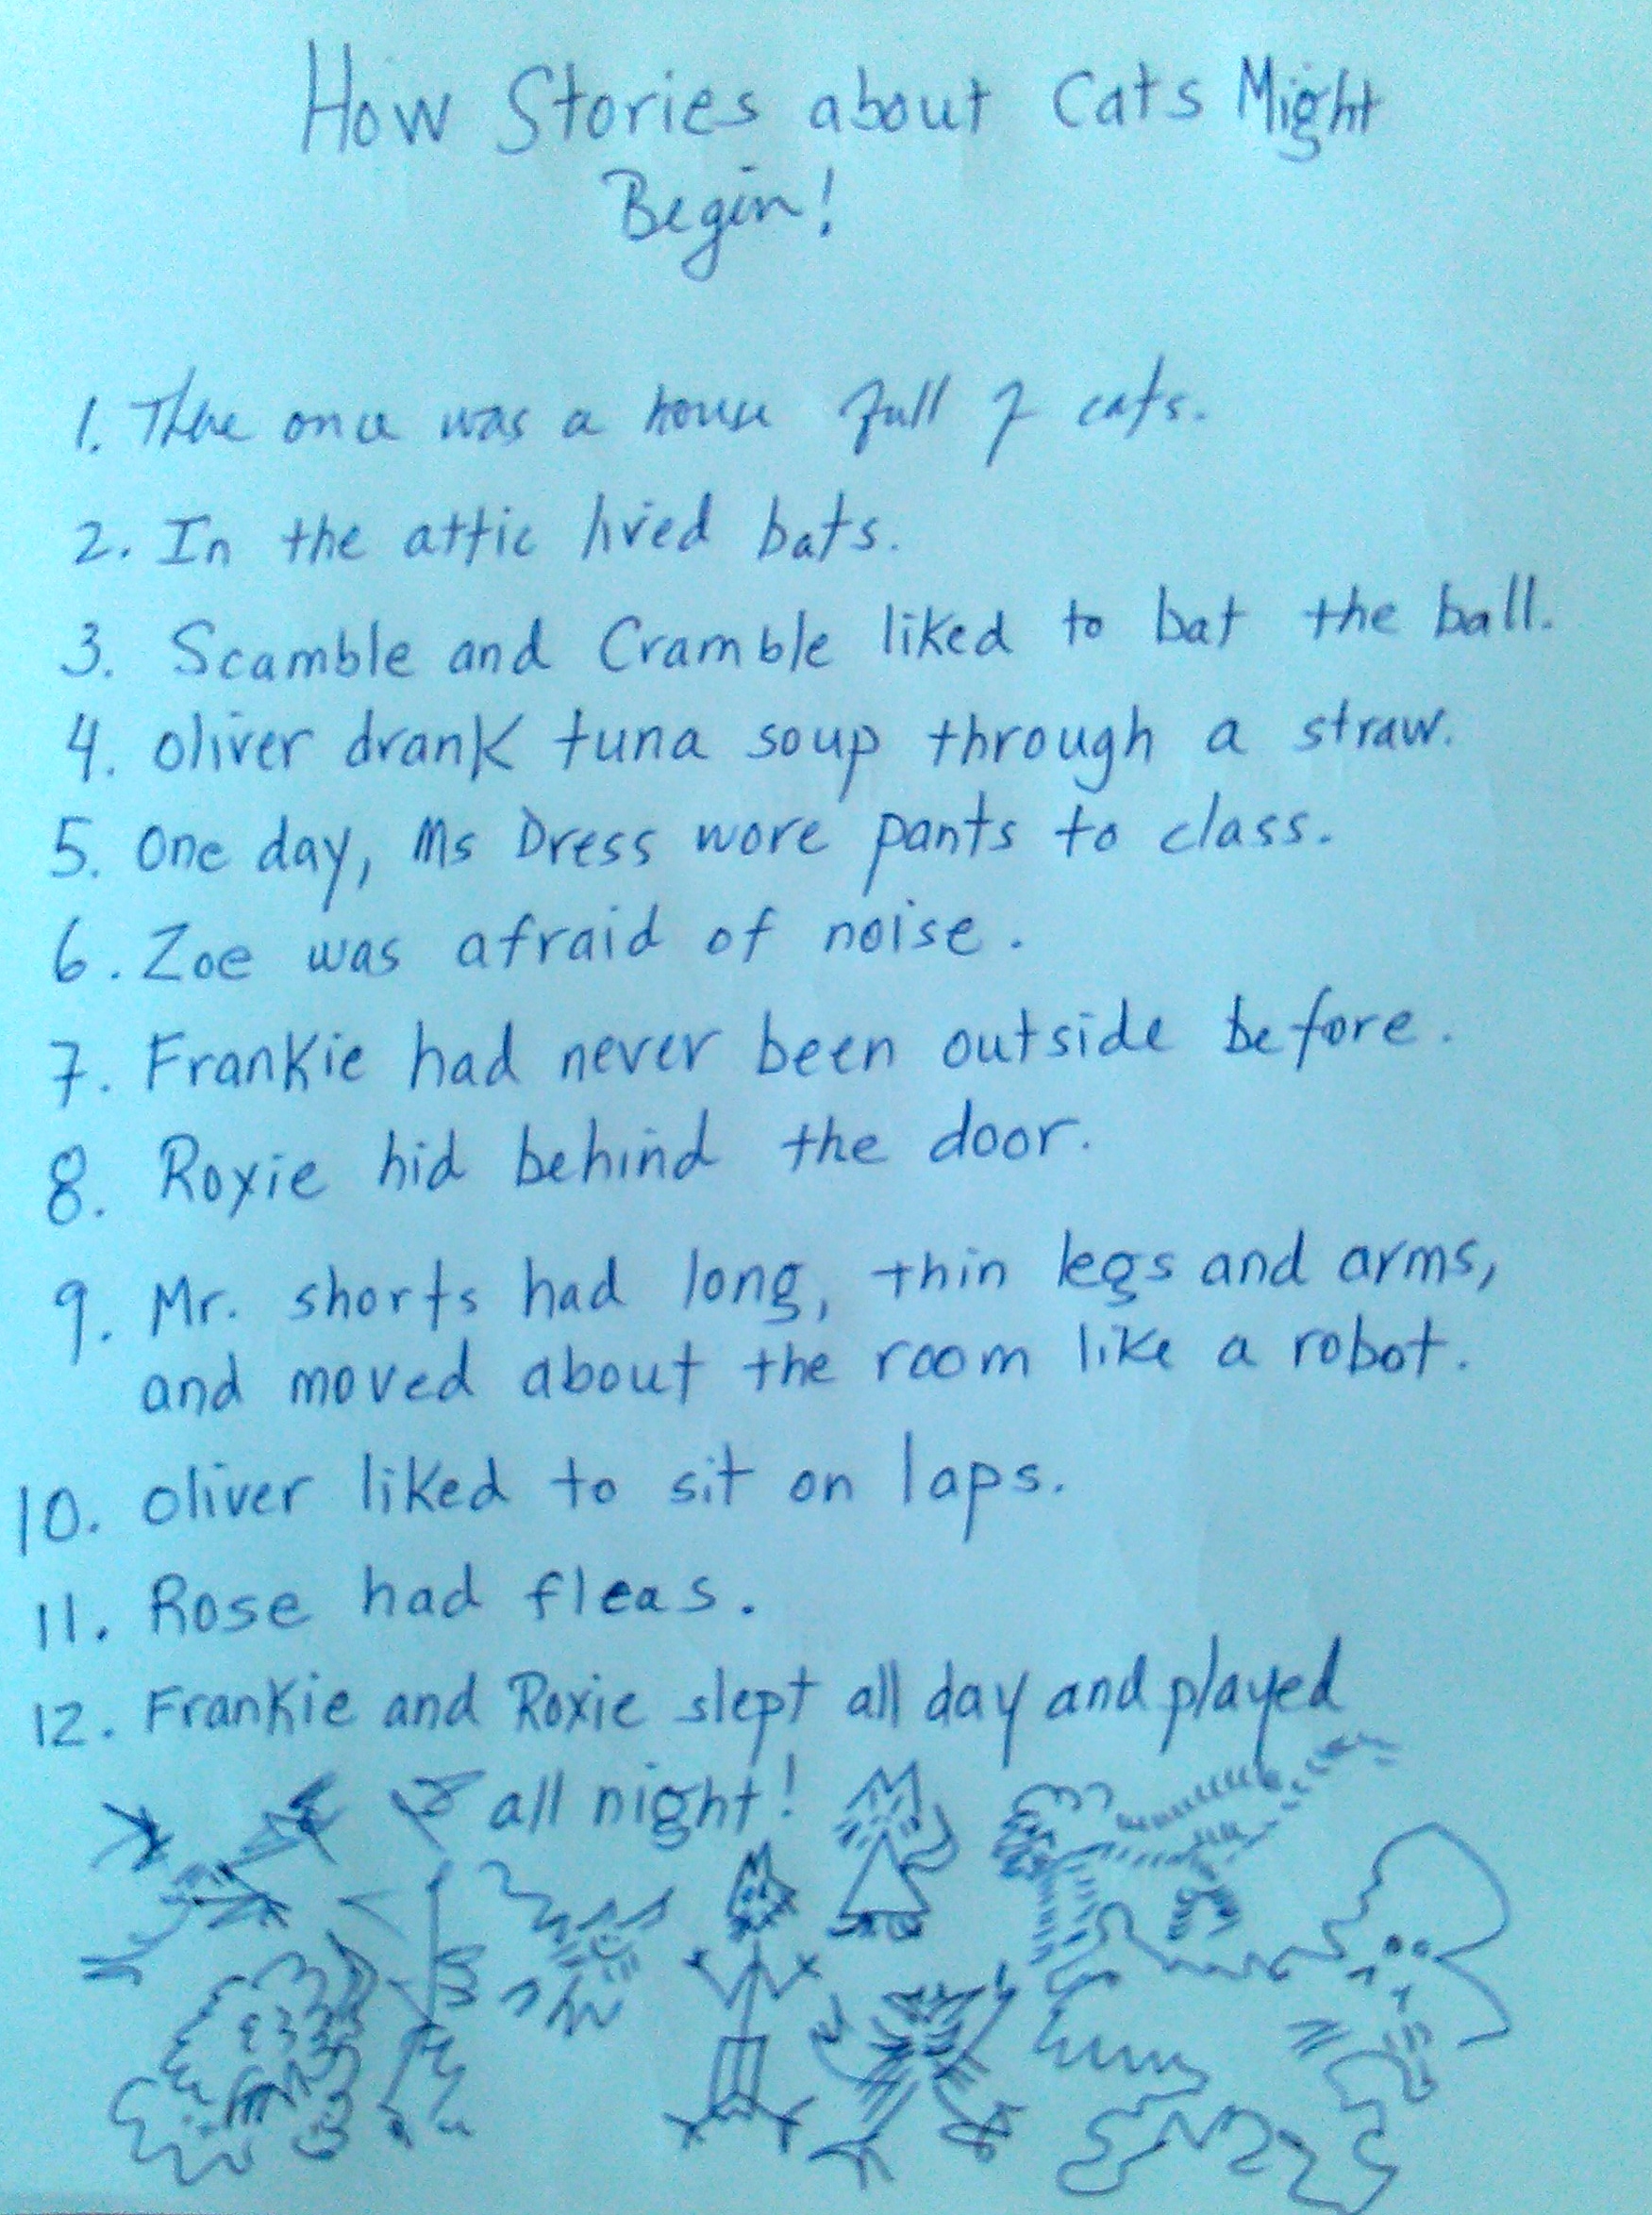 How Stories about Cats Might
Begin!
1. There once was a house full of cats.
2. In the attic lived bats.
3. Scamble and Cramble liked to bat the ball.
4. Oliver drank tuna soup through a straw.
5. One day, Ms Dress wore pants to class.
6. Zoe was afraid of noise.
7. Frankie had never been outside before.
8. Roxie hid behind the door.
9. Mr. Shorts had long, thin legs and arms,
and moved about the room like a robot.
10. Oliver liked to sit on laps.
11. Rose had fleas.
12. Frankie and Roxie slept all day and played
all night!